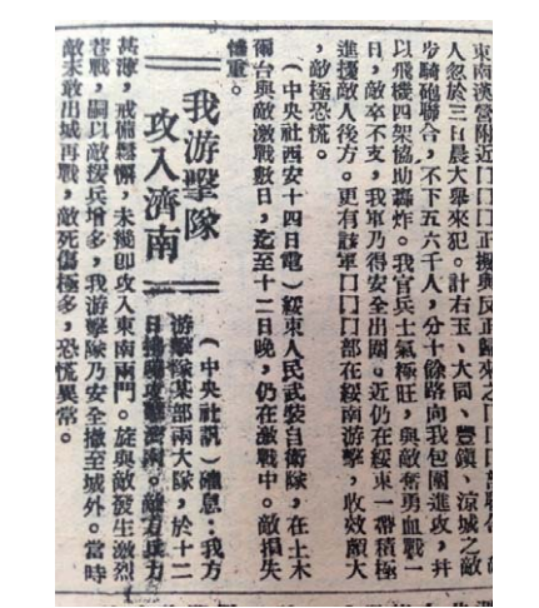 東南澳營附近口口口正擬與反正歸來之口口口部聯合,敵
人忽於三日晨大舉來犯。計右玉、大同、豐鎮、涼城之敵
步騎砲聯合,不下五六千人,分十餘路向我包圍進攻,幷
以飛機四架協助轟炸。我官兵士氣極旺,與敵奮勇血戰一
日,敵卒不支,我軍乃得安全出圍。近仍在綏東一帶積極
進擾敵人後方。更有該軍口口口部在綏南游擊,收效頗大
,敵極恐慌。
(中央社西安十四日電)綏東人民武裝自衛隊,在土木
爾台與敵激戰數日,迄至十二日晚,仍在激戰中。敵損失
慘重。
我游擊隊
攻入濟南
(中央社訊)確息:我方
游擊隊某部兩大隊,於十二
日攻擊濟南。敵方兵力
甚薄,戒備鬆懈,未幾卽攻入東南兩門。旋與敵發生激烈
巷戰,嗣以敵援兵增多,我游擊隊乃安全撤至城外。當時
敵未敢出城再戰,敵死傷極多,恐慌異常。